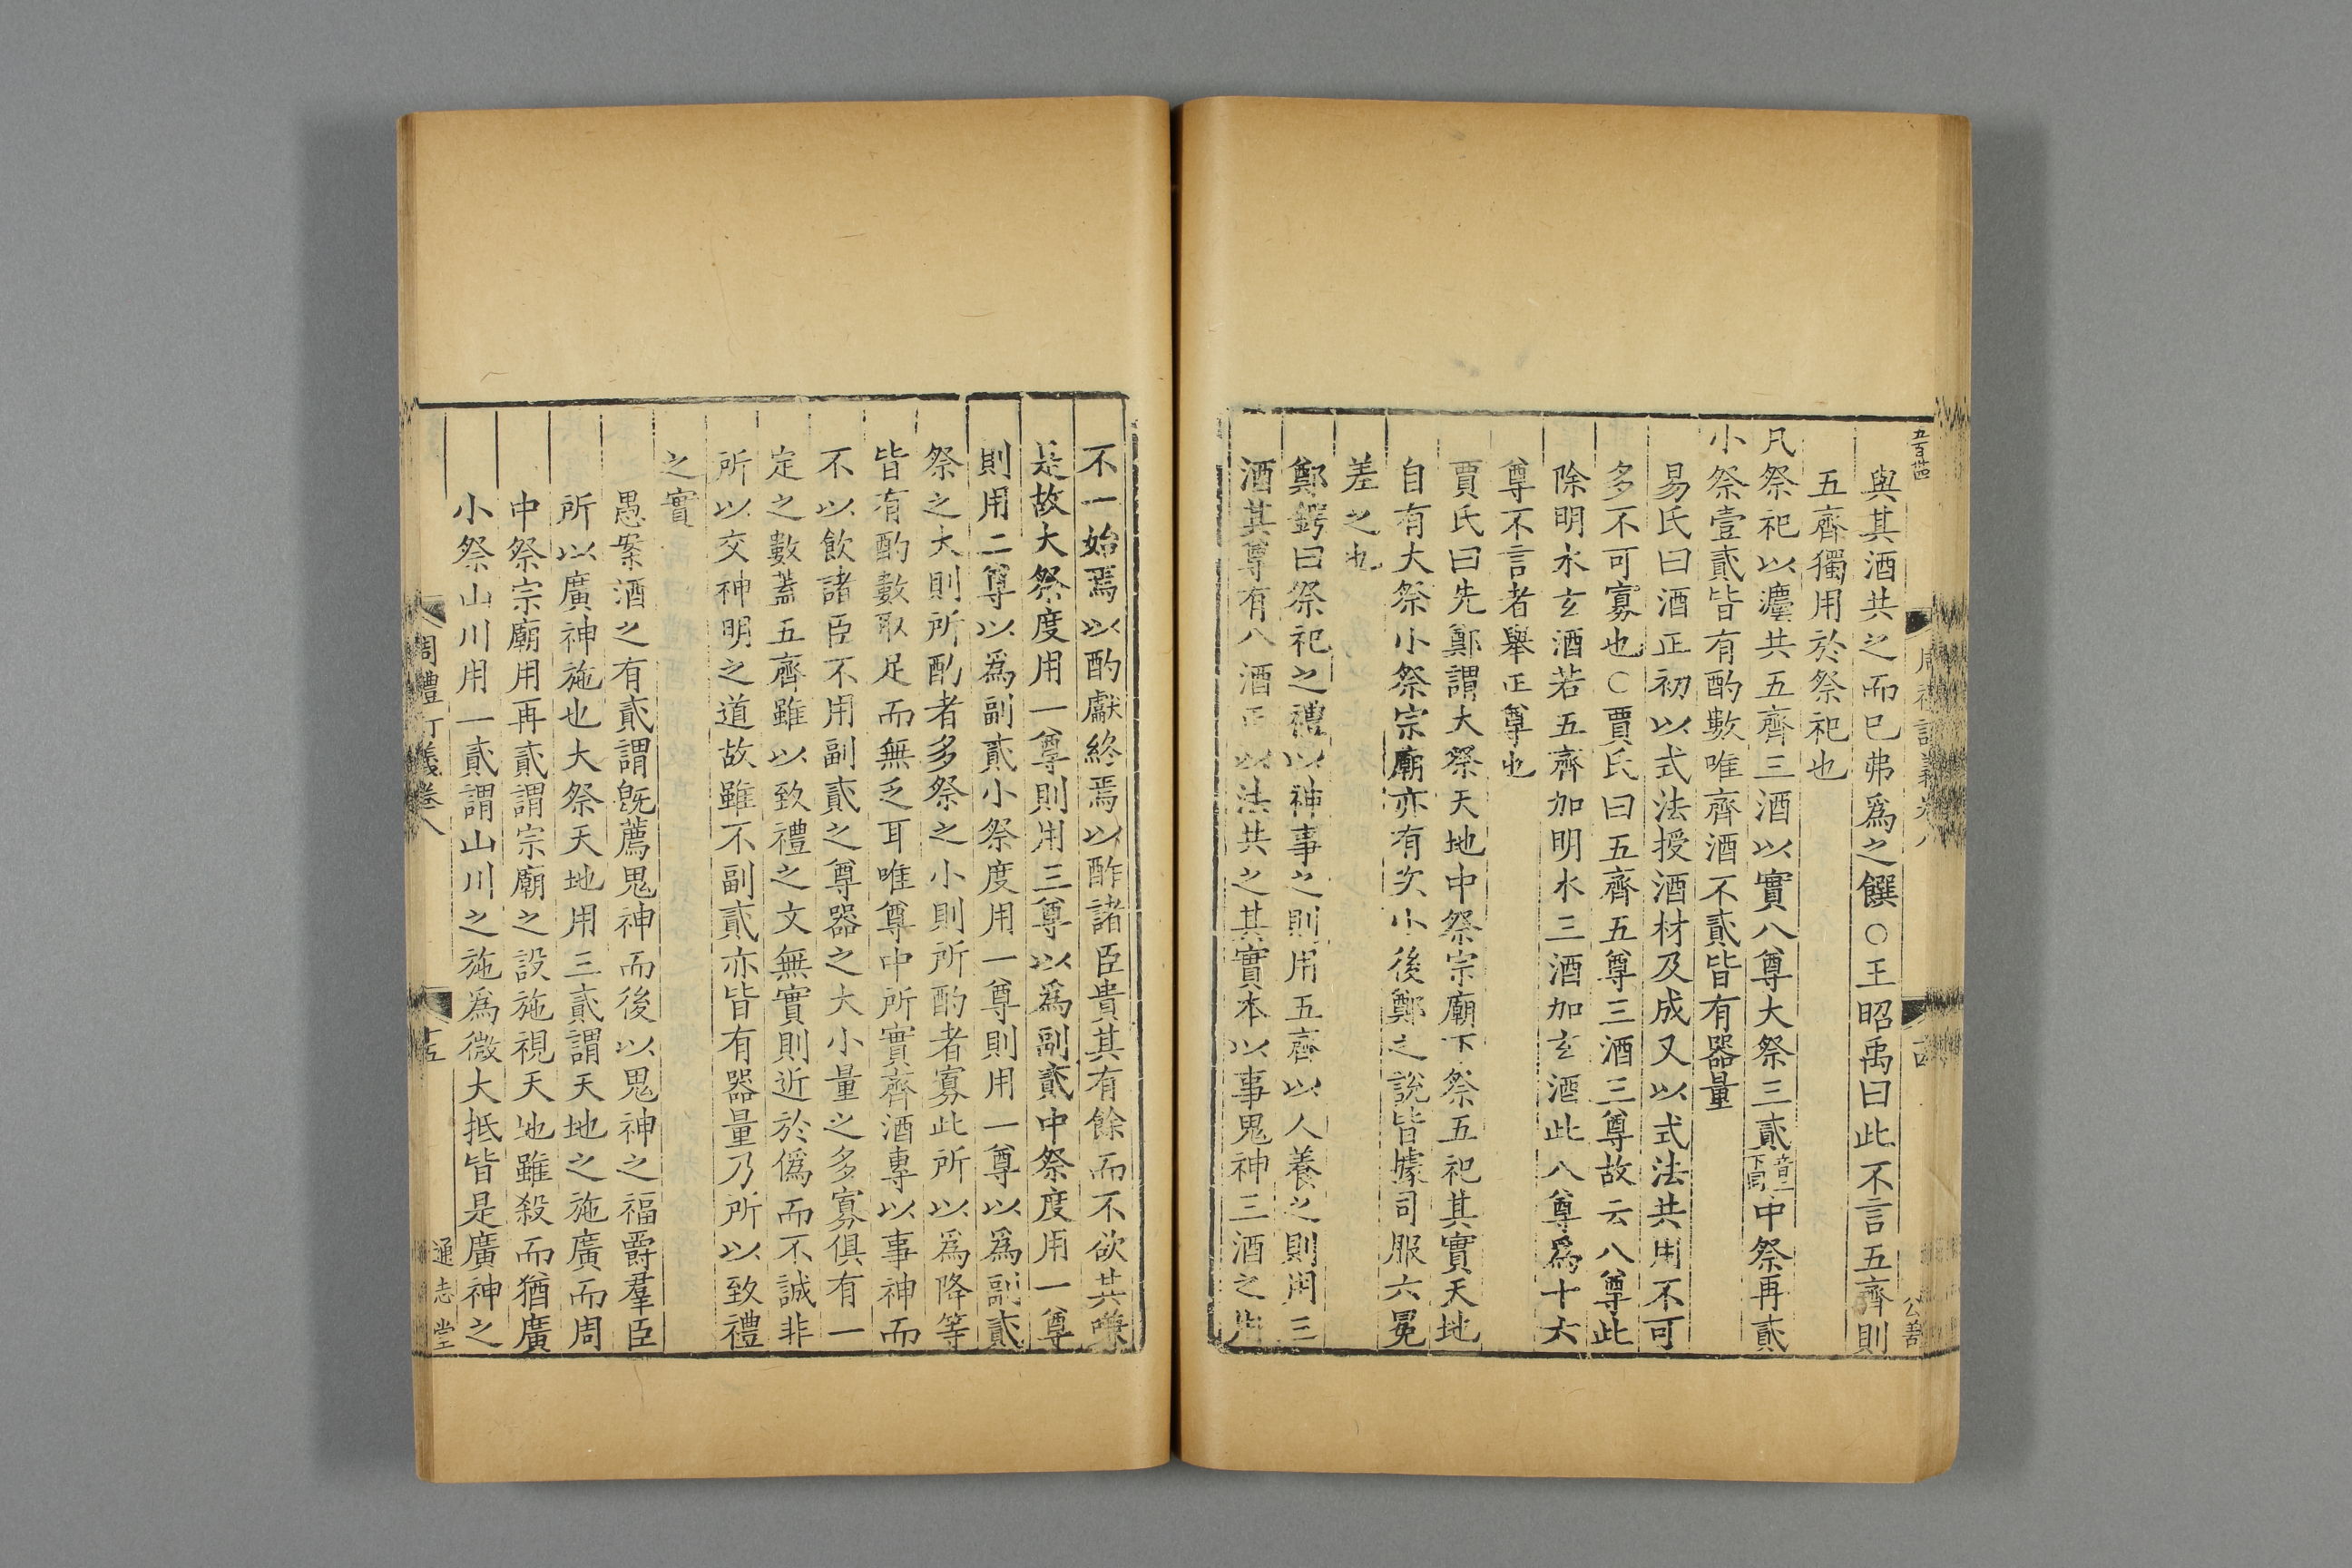 與其酒共之而巳弗爲之饌○王昭禹曰此不言五齊則
五齊獨用於祭祀也
凡祭祀以灋共五齊三酒以實八尊大祭三貳音二下同中祭再貳
小祭壹貳皆有酌數唯齊酒不貳皆有器量
易氏曰酒正初以式法授酒材及成又以式法共用不可
多不可寡也○賈氏曰五齊五尊三酒三尊故云八尊此
除明水玄酒若五齊加明水三酒加玄酒此八尊爲十六
尊不言者舉正尊也
賈氏曰先鄭謂大祭天地中祭宗廟下祭五祀其實天地
自有大祭小祭宗廟亦有次小後鄭之說皆據司服六冕
差之也
鄭鍔曰祭祀之禮以神事之則用五齊以人養之則用三
酒其尊有八酒正以法共之其實本以事鬼神三酒之
不一始焉以酌獻終焉以酢諸臣貴其有餘而不欲其
是故大祭度用一尊則用三尊以爲副貳中祭度用一尊
則用二尊以爲副貳小祭度用一尊則用一尊以爲副貳
祭之大則所酌者多祭之小則所酌者寡此所以爲降等
皆有酌數取足而無乏耳唯尊中所實齊酒專以事神而
不以飲諸臣不用副貳之尊器之大小量之多寡俱有一
定之數蓋五齊雖以致禮之文無實則近於僞而不誠非
所以交神明之道故雖不副貳亦皆有器量乃所以致禮
之實
愚案酒之有貳謂旣薦鬼神而後以鬼神之福爵羣臣
所以廣神施也大祭天地用三貳謂天地之施廣而周
中祭宗廟用再貳謂宗廟之設施視天地雖殺而猶廣
小祭山川用一貳謂山川之施爲微大抵皆是廣神之
周禮訂義卷八
十五
通志堂